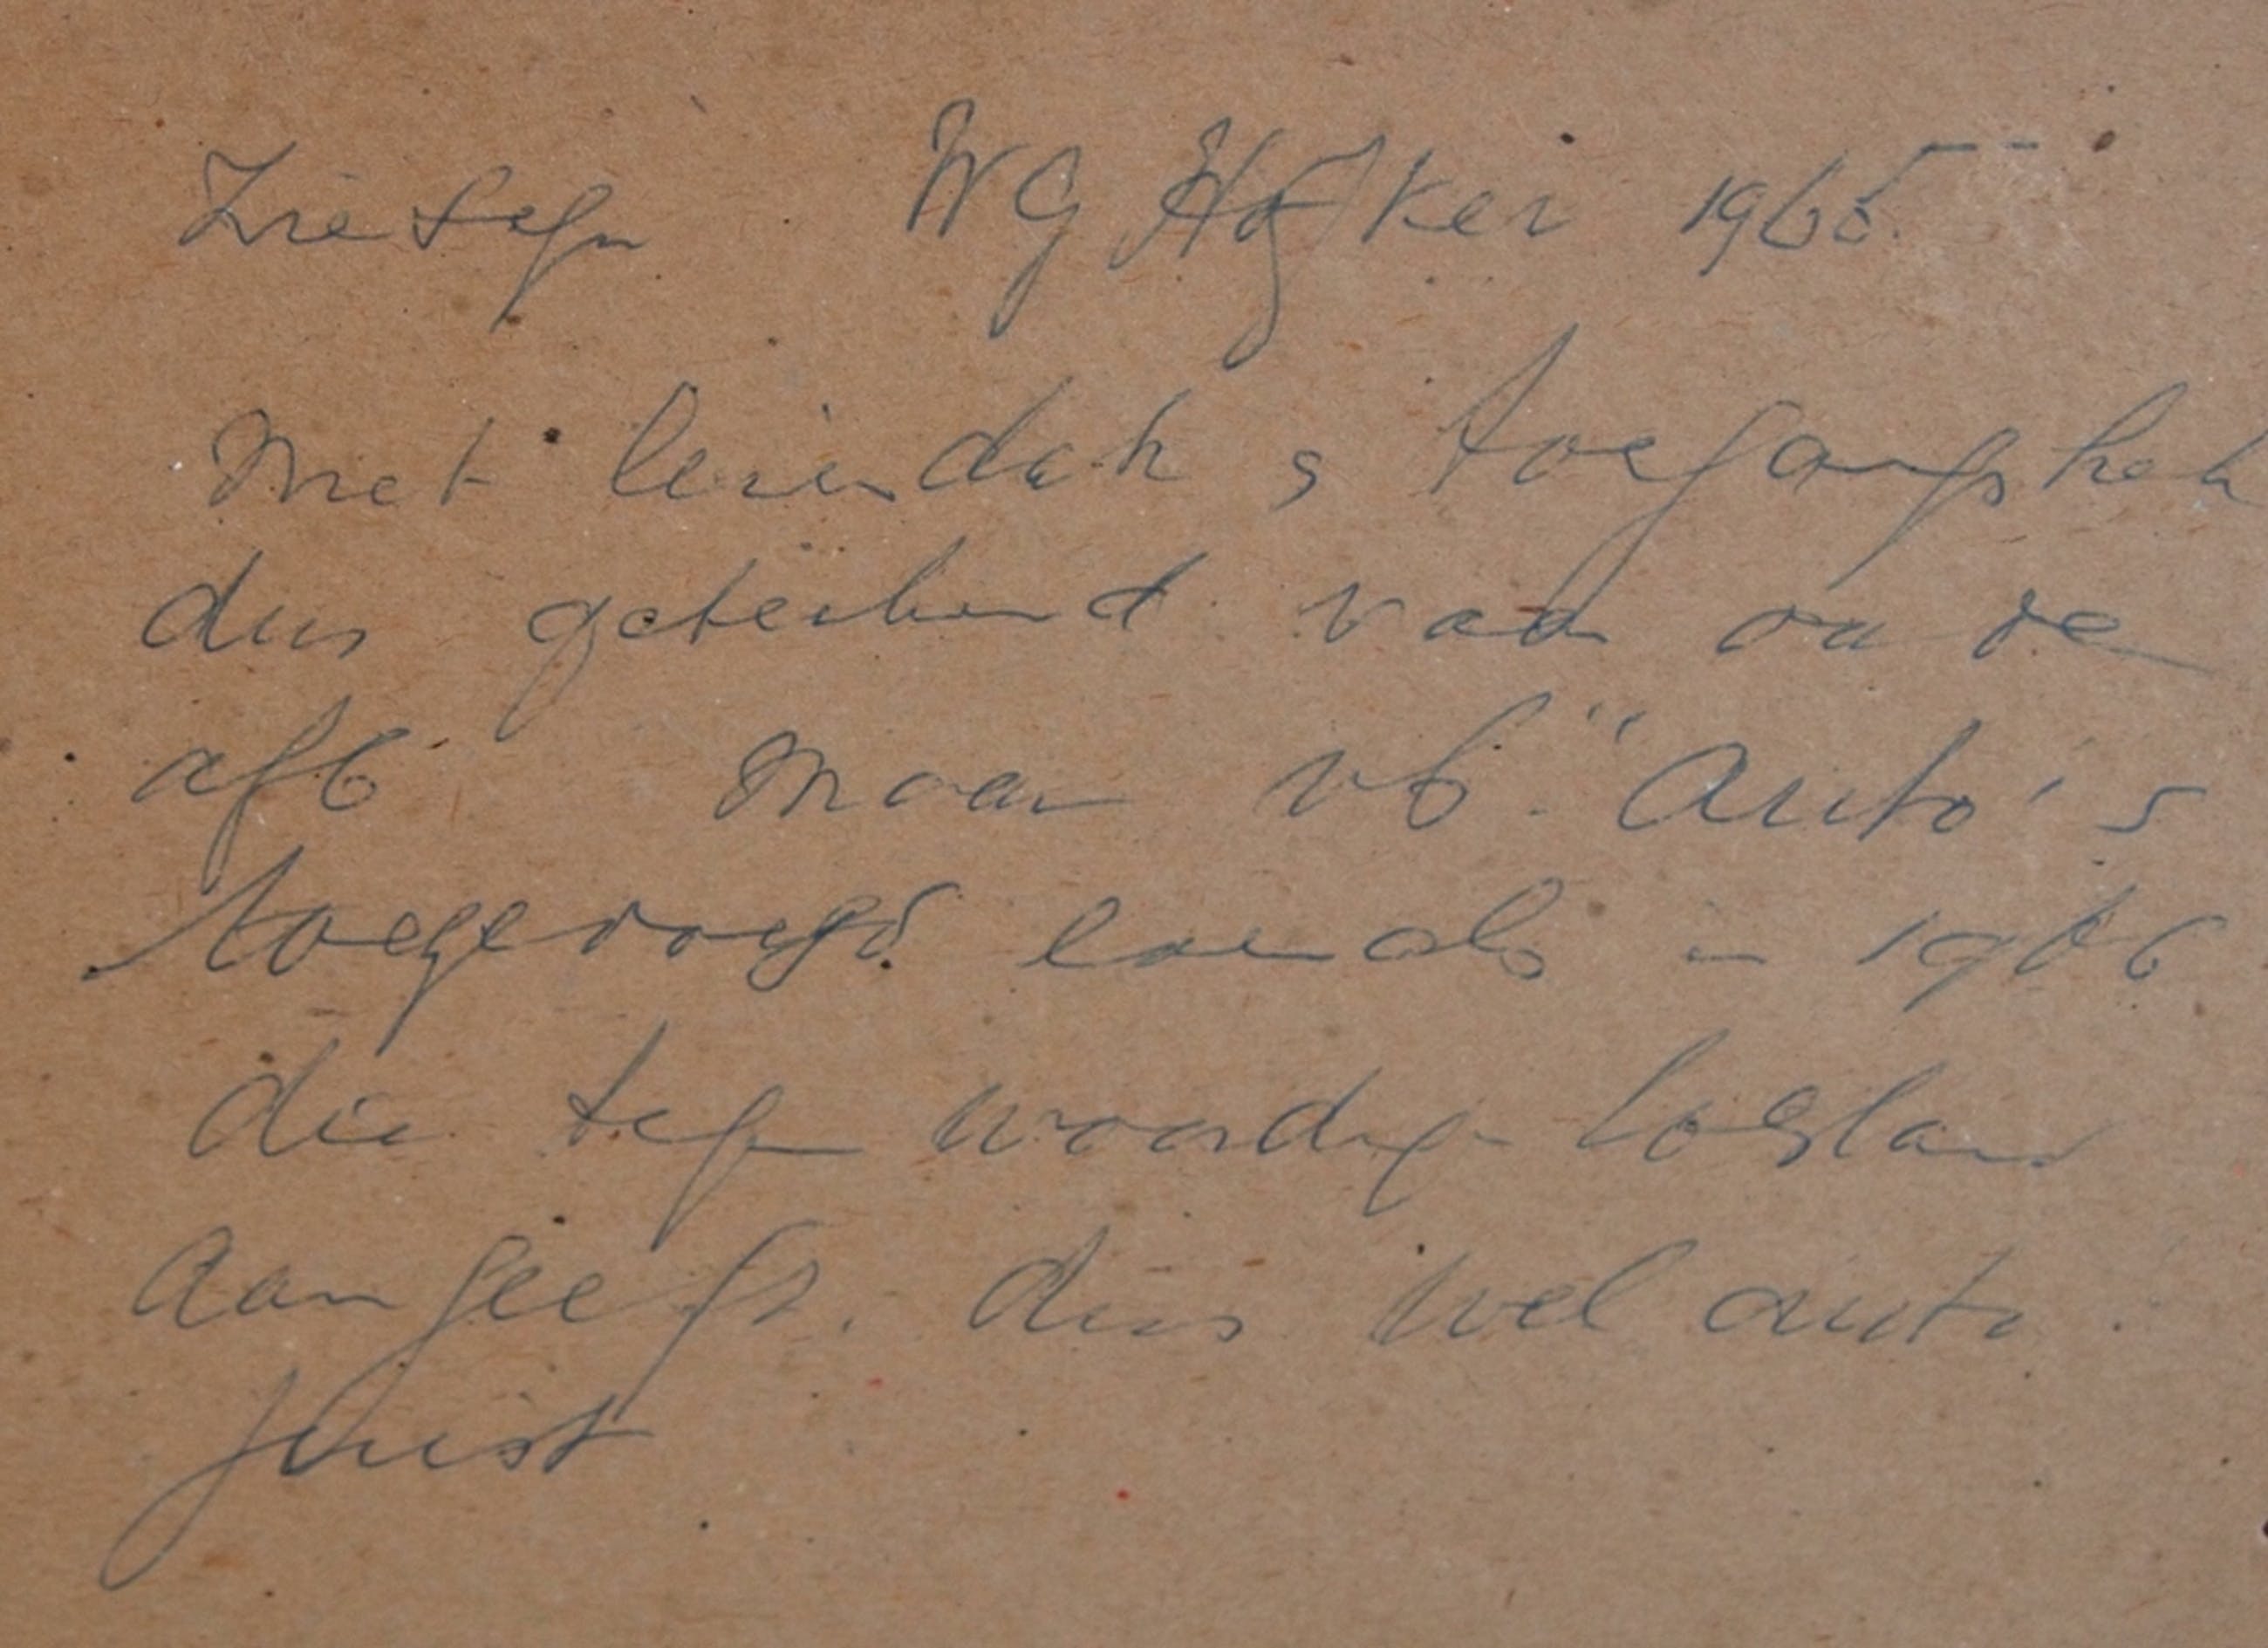 WG Hofker 1965
Met leiendak s toegangshek
dus getekend van oude
afb maar vb. "auto's
toegevoegd evenals in 1966
die tegenwoordige toestand
aangeeft. dus wel auto
juist